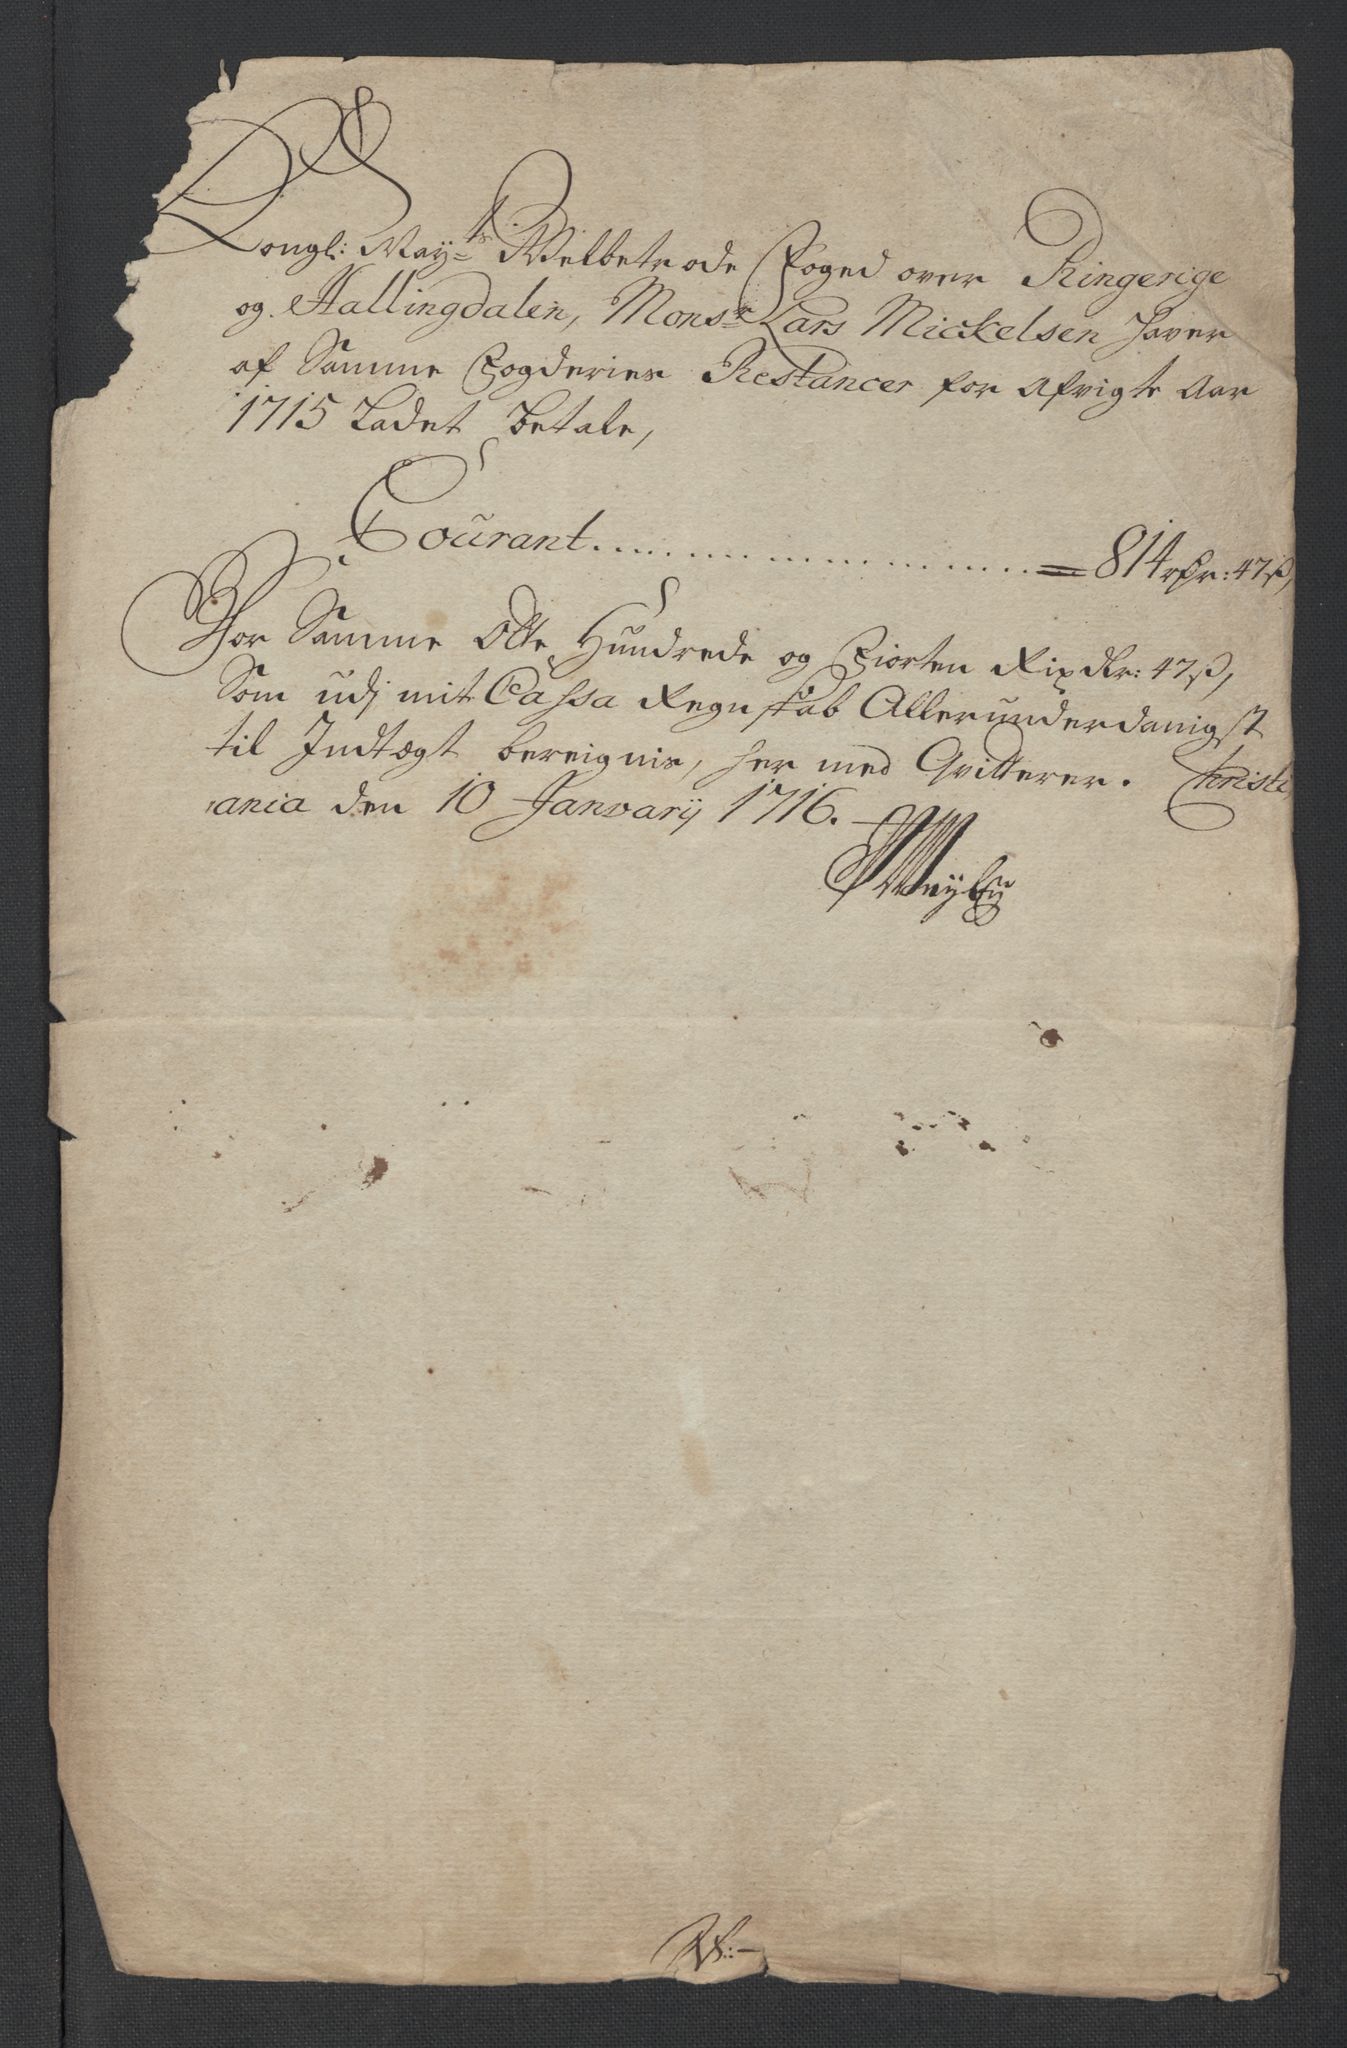 Kongl: May:ts Welbetrode Foged over Ringerige
og Hallingdalen, Monsr Lars Mickelsen haver
af Samme Fogderies Restancer for Afvigte Aar
1715 Ladet betale,
Courant = 814 rdr: 47ß,
For Samme Otte Hundrede og Fiorten Rixdlr: 47ß,
Som udj mit Cassa Regnskab Allerunderdanigst
til Indtægt bereignis, her med Qvitterer. Christi
ania den 10 Janvarij 1716.